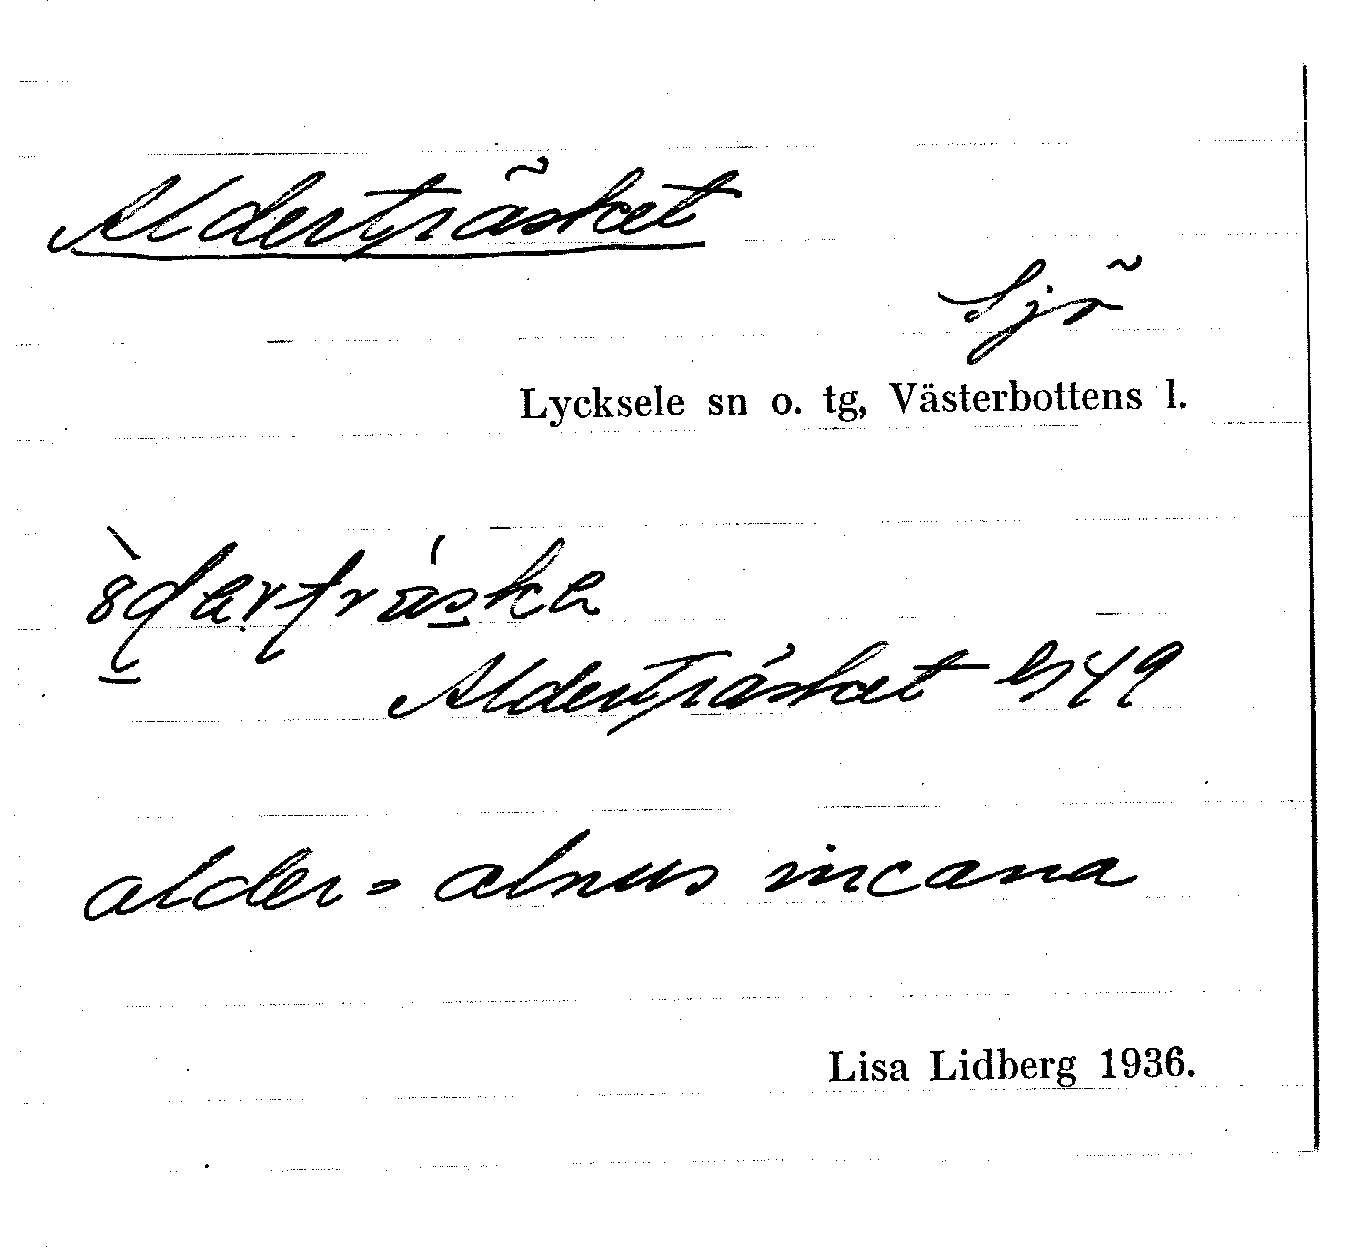 Alderträsket
Sjö
Lycksele sn o. tg, Västerbottens l.
Alderträsket
alder = alnus incana
Lisa Lidberg 1936.